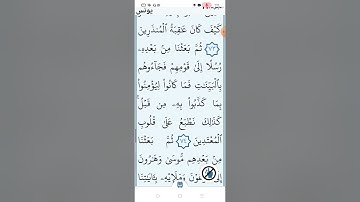 يونس
كَيْفَ كَانَ عَٰقِبَةُ ٱلْمُنذَرِينَ
٧٣ ثُمَّ بَعَثْنَا مِنۢ بَعْدِهِۦ
رُسُلًا إِلَىٰ قَوْمِهِمْ فَجَآءُوهُم
بِٱلْبَيِّنَٰتِ فَمَا كَانُوا۟ لِيُؤْمِنُوا۟
بِمَا كَذَّبُوا۟ بِهِۦ مِن قَبْلُ
كَذَٰلِكَ نَطْبَعُ عَلَىٰ قُلُوبِ
ٱلْمُعْتَدِينَ ٧٤ ثُمَّ بَعَثْنَا
مِنۢ بَعْدِهِم مُّوسَىٰ وَهَٰرُونَ
إِلَىٰ فِرْعَوْنَ وَمَلَإِي۟هِۦ بِـَٔايَٰتِنَا